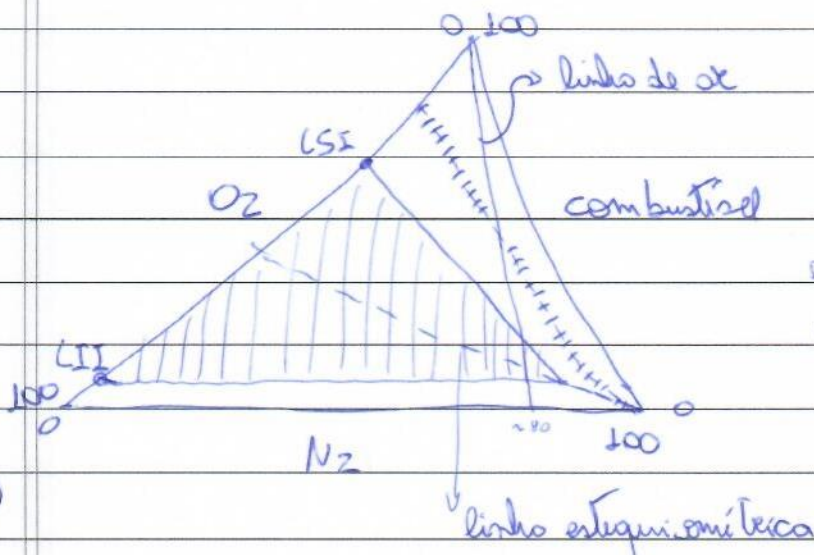 0 100
linha de ar
LSI
O2
combustível
LII
100
0
N2
~80
100
0
linha estequiométrica